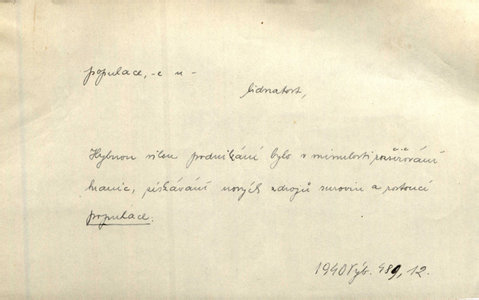 populace, -e u -
lidnatost,
Hybnou silou podnikání bylo v minulosti rozšiřování
hranic, získávání nových zdrojů surovin a rostoucí
populace.
1940 Výb. 489, 12.